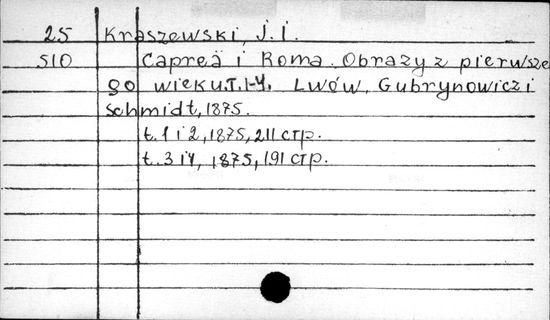 25 Kraszewski, J. I.
510 Capreä i Roma. Obrazy z pierwsze
go wieku T. I-4. Lwów, Gubrynowicz i
Schmidt, 1875.
t. 1 i 2, 1875, 211 стр.
t. 3 i 4, 1875, 191 стр.